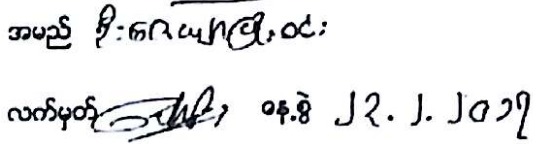 အမည် ဖိုးဇေယျာဖြိုးဝင်း
လက်မှတ် နေ့စွဲ ၂၃.၂.၂၀၁၇